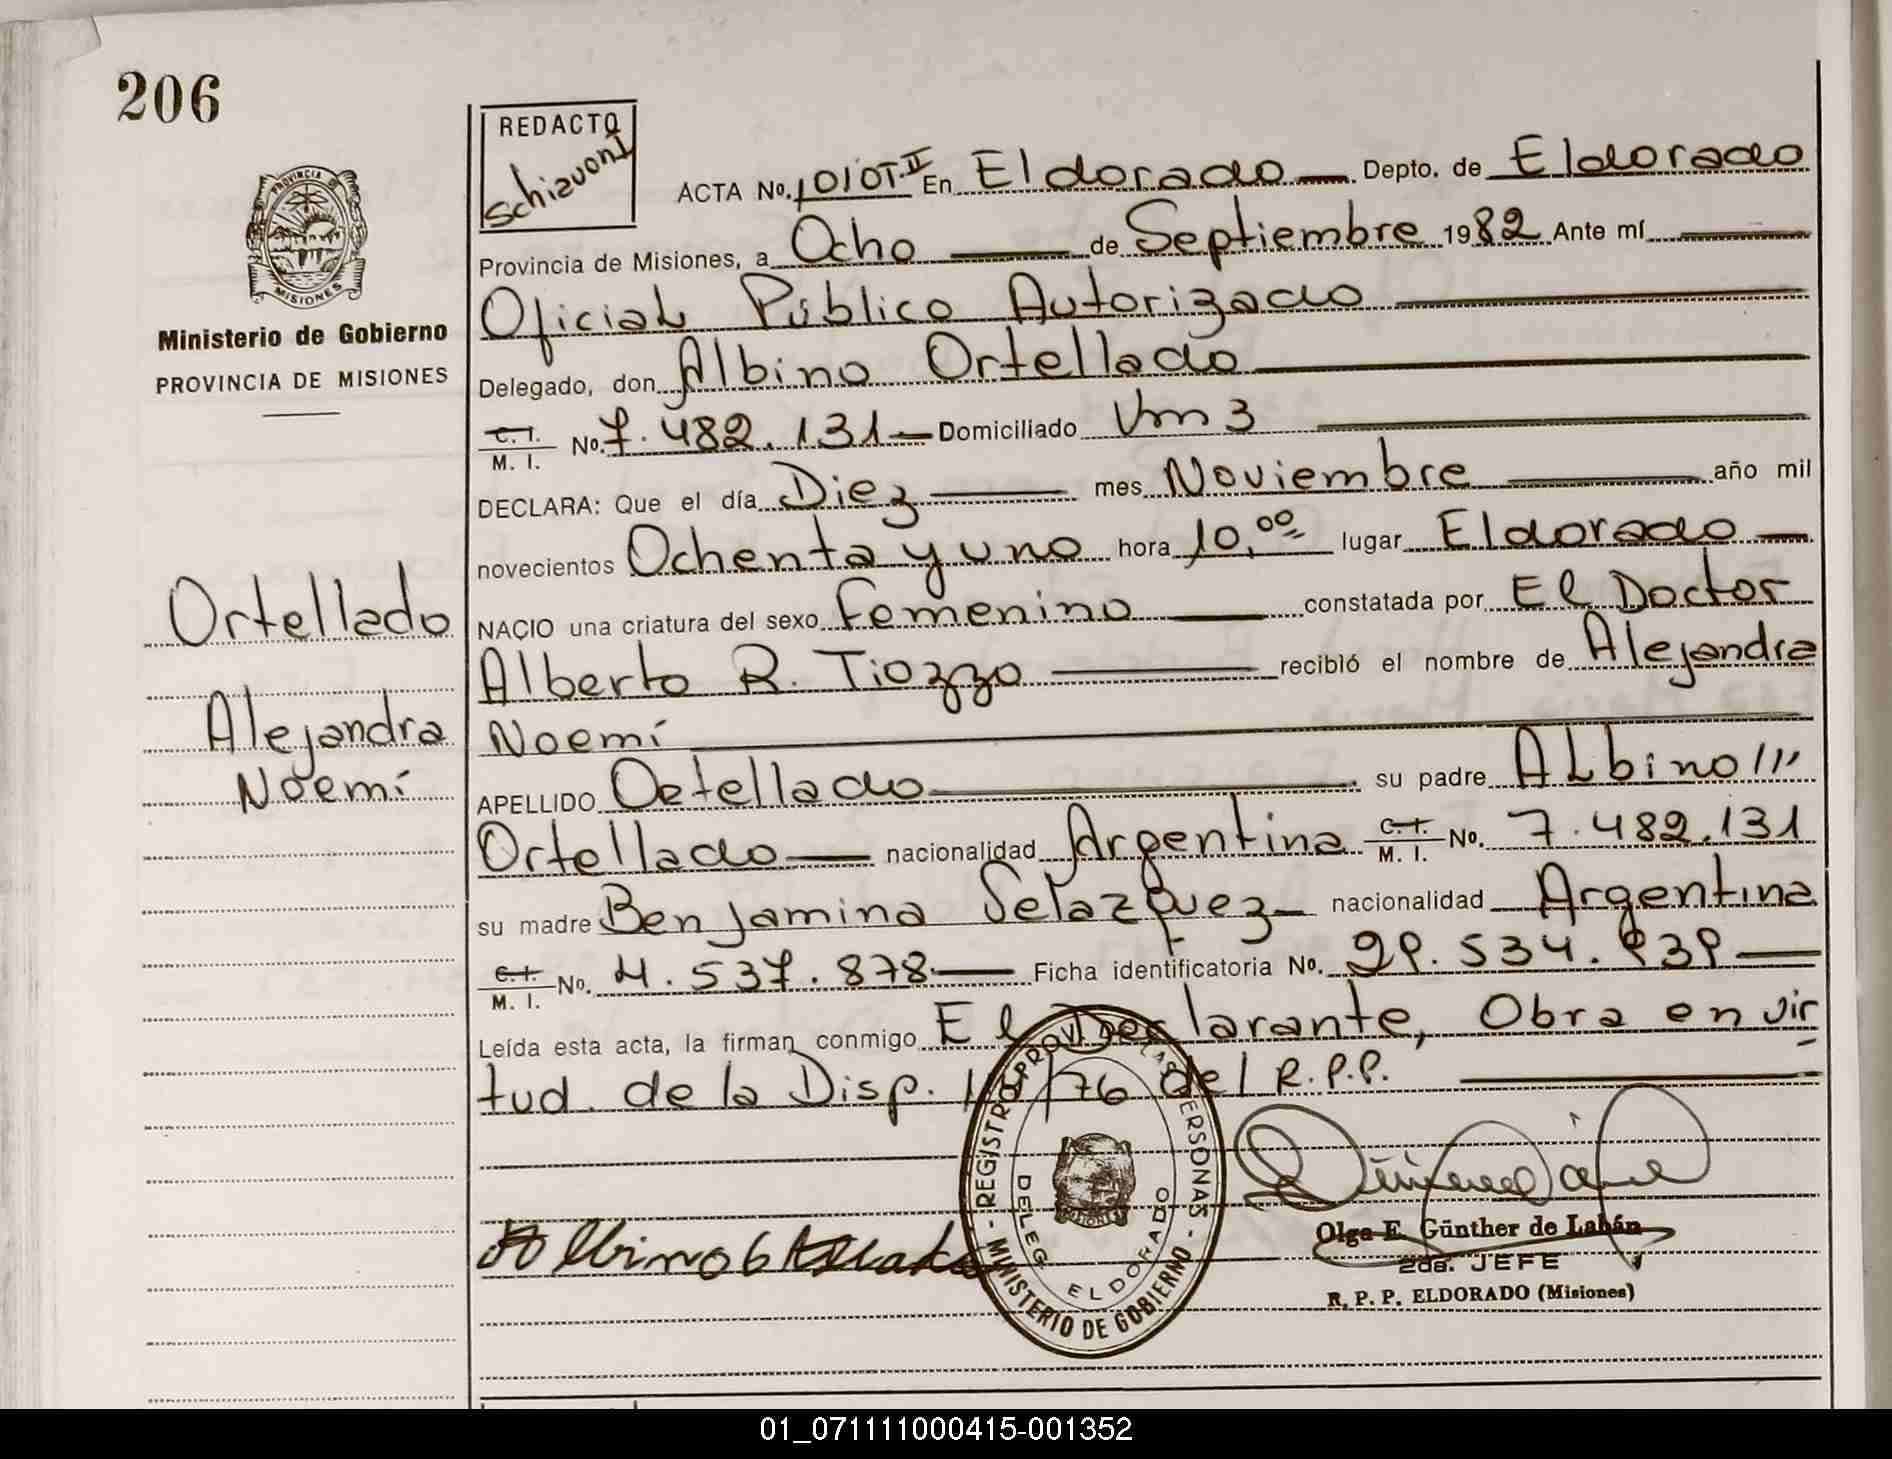 206
REDACTO
Schiavoni
ACTA No. 1010T.II En Eldorado Depto. de Eldorado
Provincia de Misiones, a Ocho de Septiembre 1982 Ante mí
Oficial Público Autorizado
Delegado, don Albino Ortellado
C.I. M. I. No. 7.482.131 Domiciliado Km 3
DECLARA: Que el día Diez mes Noviembre año mil
novecientos Ochenta y uno hora 10,00 lugar Eldorado
NACIO una criatura del sexo Femenino constatada por El Doctor
Alberto R. Tiozzo recibió el nombre de Alejandra
Noemí
APELLIDO Ortellado su padre Albino
Ortellado nacionalidad Argentina C.I. M. I. No. 7.482.131
su madre Benjamina nacionalidad Argentina
C.I. M. I. No. 4.537.878 Ficha identificatoria No. 29.534.
Leída esta acta, la firman conmigo El Declarante, Obra en vir
tud. de la Disp. /76 del R.P.P.
PROVINCIA DE
MISIONES
Ministerio de Gobierno
PROVINCIA DE MISIONES
Ortellado
Alejandra
Noemí
REGISTRO PROV. LAS PERSONAS - MINISTERIO DE GOBIERNO -
DELEG ELDORADO
Albino
Olga E. Günther de Labán
2da. JEFE
R. P. P. ELDORADO (Misiones)
01_071111000415-001352